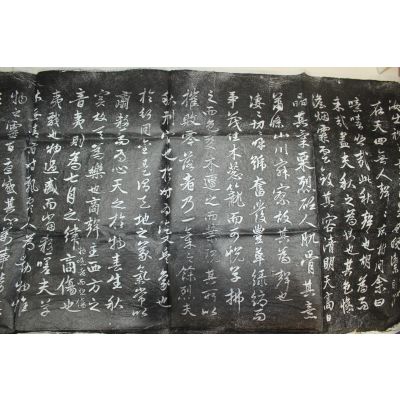 在天四無人聲聲在樹間余曰
噫嘻悲哉此秋聲也胡為而
來哉蓋夫秋之為狀也其色慘
澹煙霏雲斂其容清明天高日
晶其氣栗冽砭人肌骨其意
蕭條山川寂寥故其為聲也
淒淒切切呼號奮發豐草綠縟而
爭茂佳木葱籠而可悅草拂
之而色變木遭之而葉脫其所以
摧敗零落者乃一氣之餘烈夫
秋刑官也於時為陰又兵象也
於行用金是謂天地之義氣常以
肅殺為心天之於物春生秋
實故其在樂也商聲主西方之
音夷則為七月之律商傷也物既老而悲傷
夷戮也物過盛而當殺嗟夫草
木無情有時飄零人為動物惟
物之靈百憂感其心萬事勞